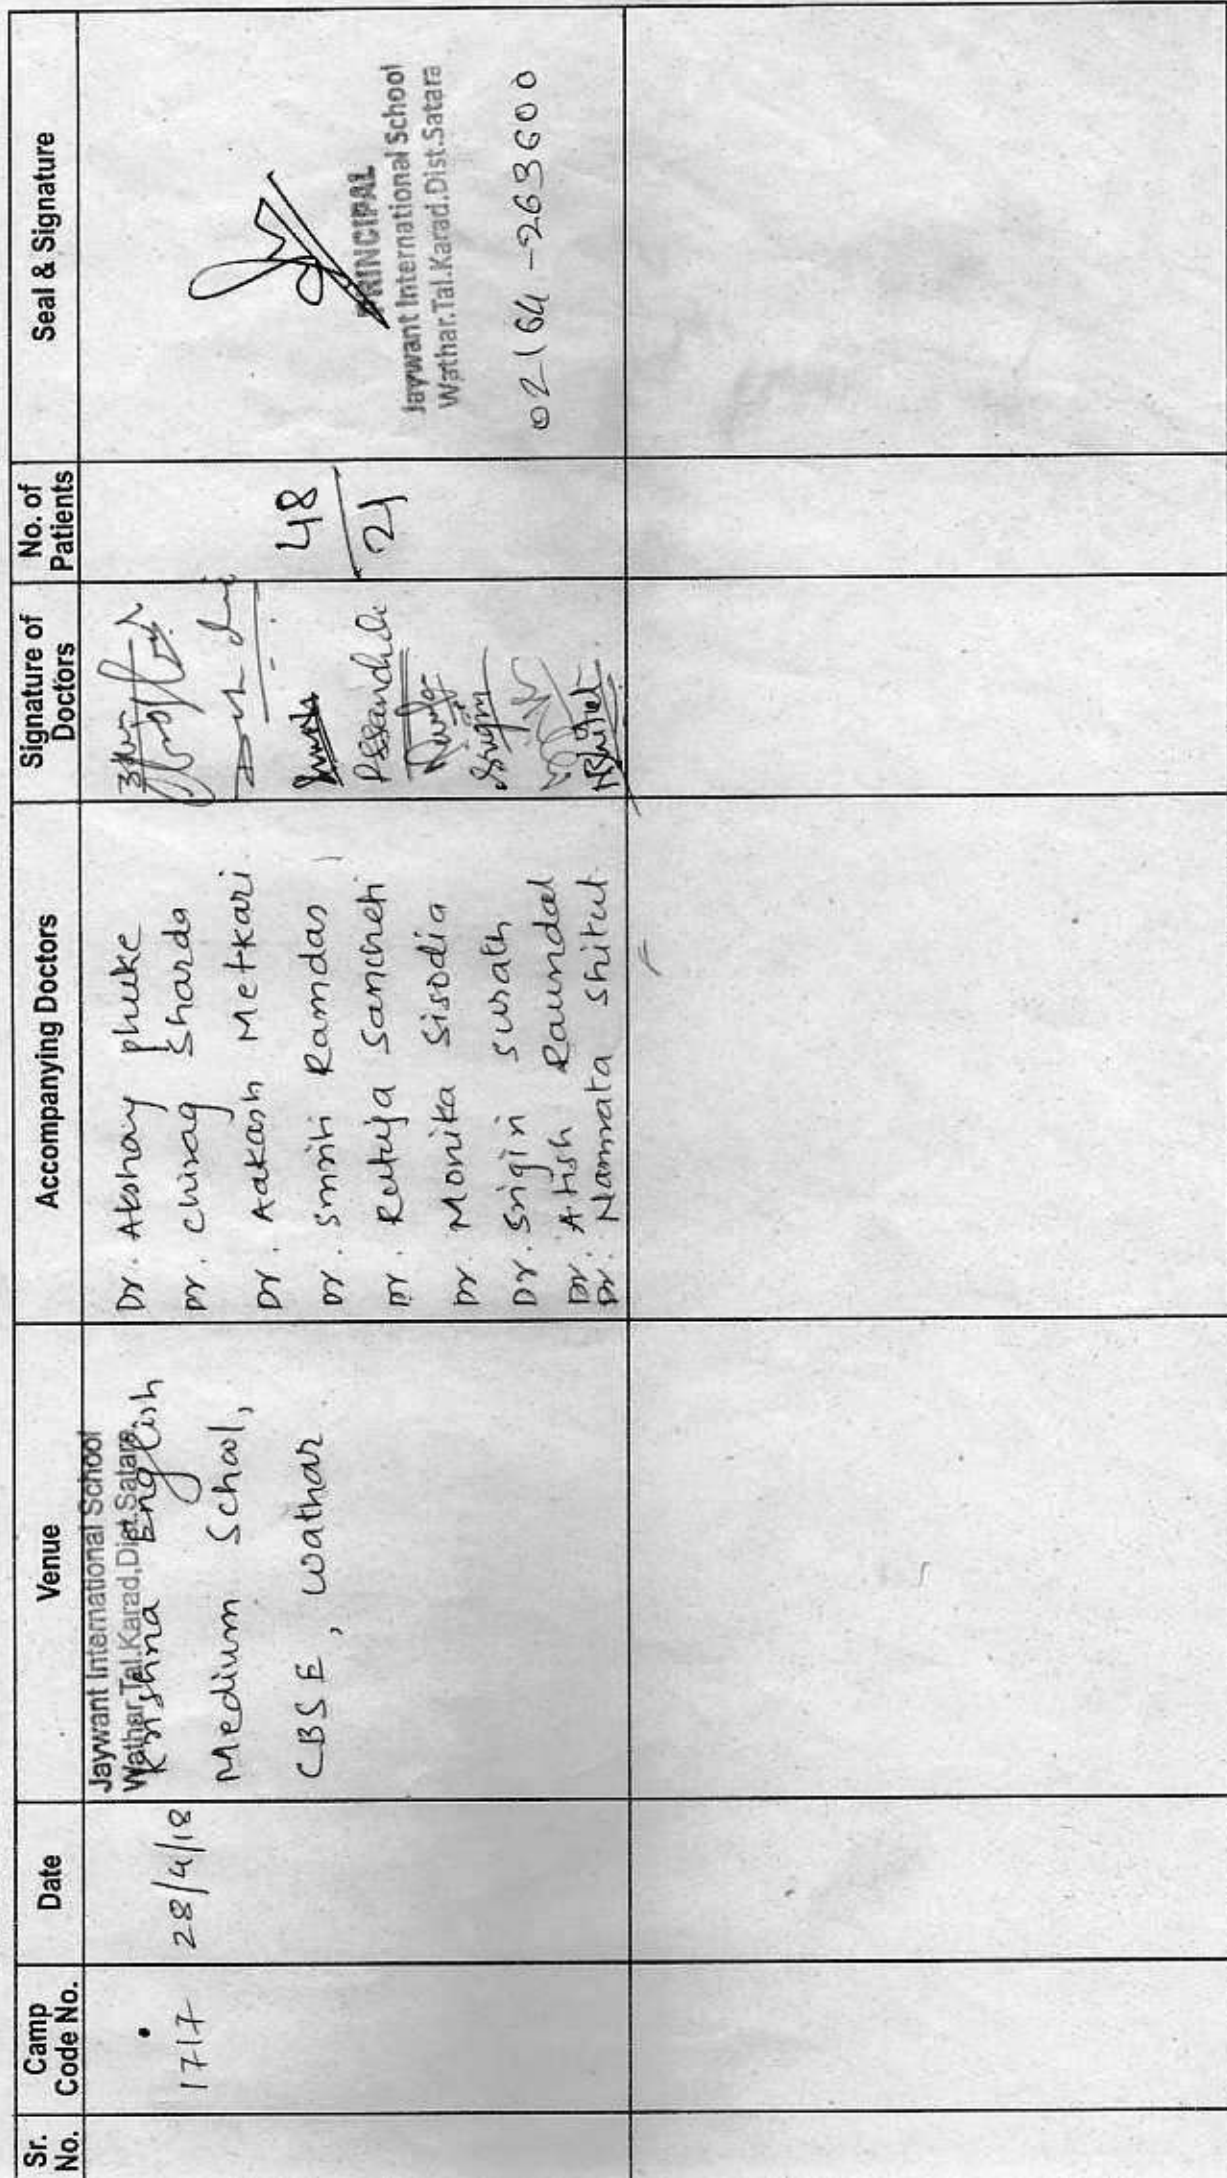 Sr. No.
Camp Code No.
Date
Venue
Accompanying Doctors
Signature of Doctors
No. of Patients
Seal & Signature
1717
28/4/18
Jaywant International School
Wathar,Tal.Karad,Dist.Satara
Krishna English
Medium School,
CBSE, Wathar
Dr. Akshay phuke
Dr. Chirag Sharda
Dr. Aakash Metkari
Dr. Smriti Ramdas
Dr. Rutuja Sancheti
Dr. Monika Sisodia
Dr. Srigiri surath
Dr. Atish Raundal
Dr. Namrata Shitut
48
21
PRINCIPAL
Jaywant International School
Wathar.Tal.Karad.Dist.Satara
02164-263600